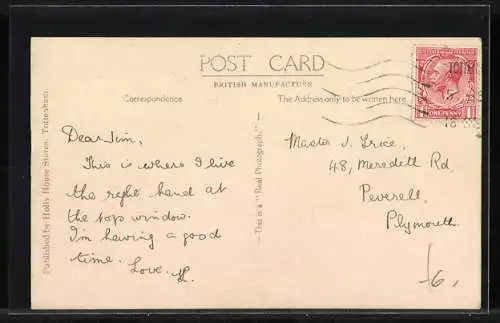 POST CARD
BRITISH MANUFACTURE
Correspondence
The Address only to be written here.
Dear Jim,
This is where I live
the right hand at
the top window.
I'm having a good
time. Love.
Published by Holly House Stores, Tottenham.
This is a "Real Photograph."
Master J. Price,
48, Meredith Rd,
Peverell,
Plymouth.
ONE PENNY
6,